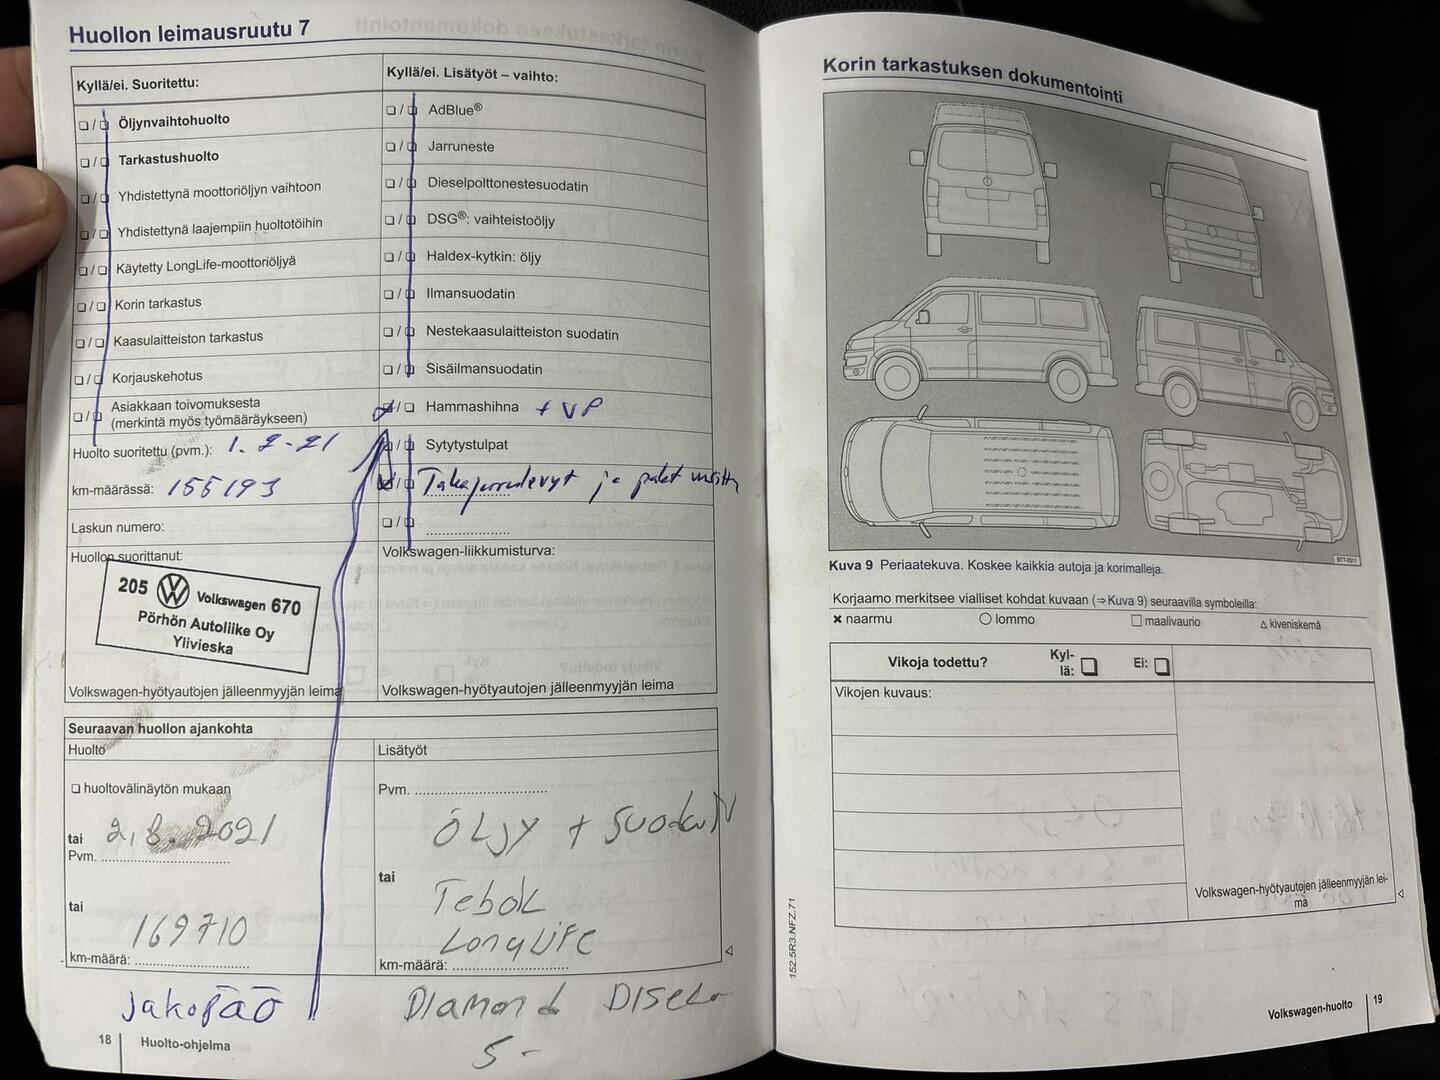 Huollon leimausruutu 7
Kyllä/ei. Suoritettu:
❑ / ❑ Öljynvaihtohuolto
❑ / ❑ Tarkastushuolto
❑ / ❑ Yhdistettynä moottoriöljyn vaihtoon
❑ / ❑ Yhdistettynä laajempiin huoltotöihin
❑ / ❑ Käytetty LongLife-moottoriöljyä
❑ / ❑ Korin tarkastus
❑ / ❑ Kaasulaitteiston tarkastus
❑ / ❑ Korjauskehotus
❑ / ❑ Asiakkaan toivomuksesta
(merkintä myös työmääräykseen)
Huolto suoritettu (pvm.): 1.2-21
km-määrässä: 155193
Laskun numero:
Huollon suorittanut:
205 VW Volkswagen 670
Pörhön Autoliike Oy
Ylivieska
Volkswagen-hyötyautojen jälleenmyyjän leima
Kyllä/ei. Lisätyöt – vaihto:
❑ / ❑ AdBlue®
❑ / ❑ Jarruneste
❑ / ❑ Dieselpolttonestesuodatin
❑ / ❑ DSG®: vaihteistoöljy
❑ / ❑ Haldex-kytkin: öljy
❑ / ❑ Ilmansuodatin
❑ / ❑ Nestekaasulaitteiston suodatin
❑ / ❑ Sisäilmansuodatin
❑ / ❑ Hammashihna + VP
❑ / ❑ Sytytystulpat
❑ / ❑ Takajarrulevyt ja palat
❑ / ❑
Volkswagen-liikkumisturva:
Volkswagen-hyötyautojen jälleenmyyjän leima
Seuraavan huollon ajankohta
Huolto
❑ huoltovälinäytön mukaan
tai
Pvm. 2.8.2021
tai
km-määrä: 169710
Jakopää
Lisätyöt
Pvm.
Öljy + Suodatin
tai
Teboil
LongLife
km-määrä:
Diamond Diesel
5-
18 Huolto-ohjelma
Korin tarkastuksen dokumentointi
BTT-0511
Kuva 9 Periaatekuva. Koskee kaikkia autoja ja korimalleja.
Korjaamo merkitsee vialliset kohdat kuvaan (⇒Kuva 9) seuraavilla symboleilla:
✖ naarmu ◯ lommo ☐ maalivaurio △ kiveniskemä
Vikoja todettu? Kyl-
lä: ❑ Ei: ❑
Vikojen kuvaus:
Volkswagen-hyötyautojen jälleenmyyjän lei-
mä
152.5R3.NFZ.71
Volkswagen-huolto 19